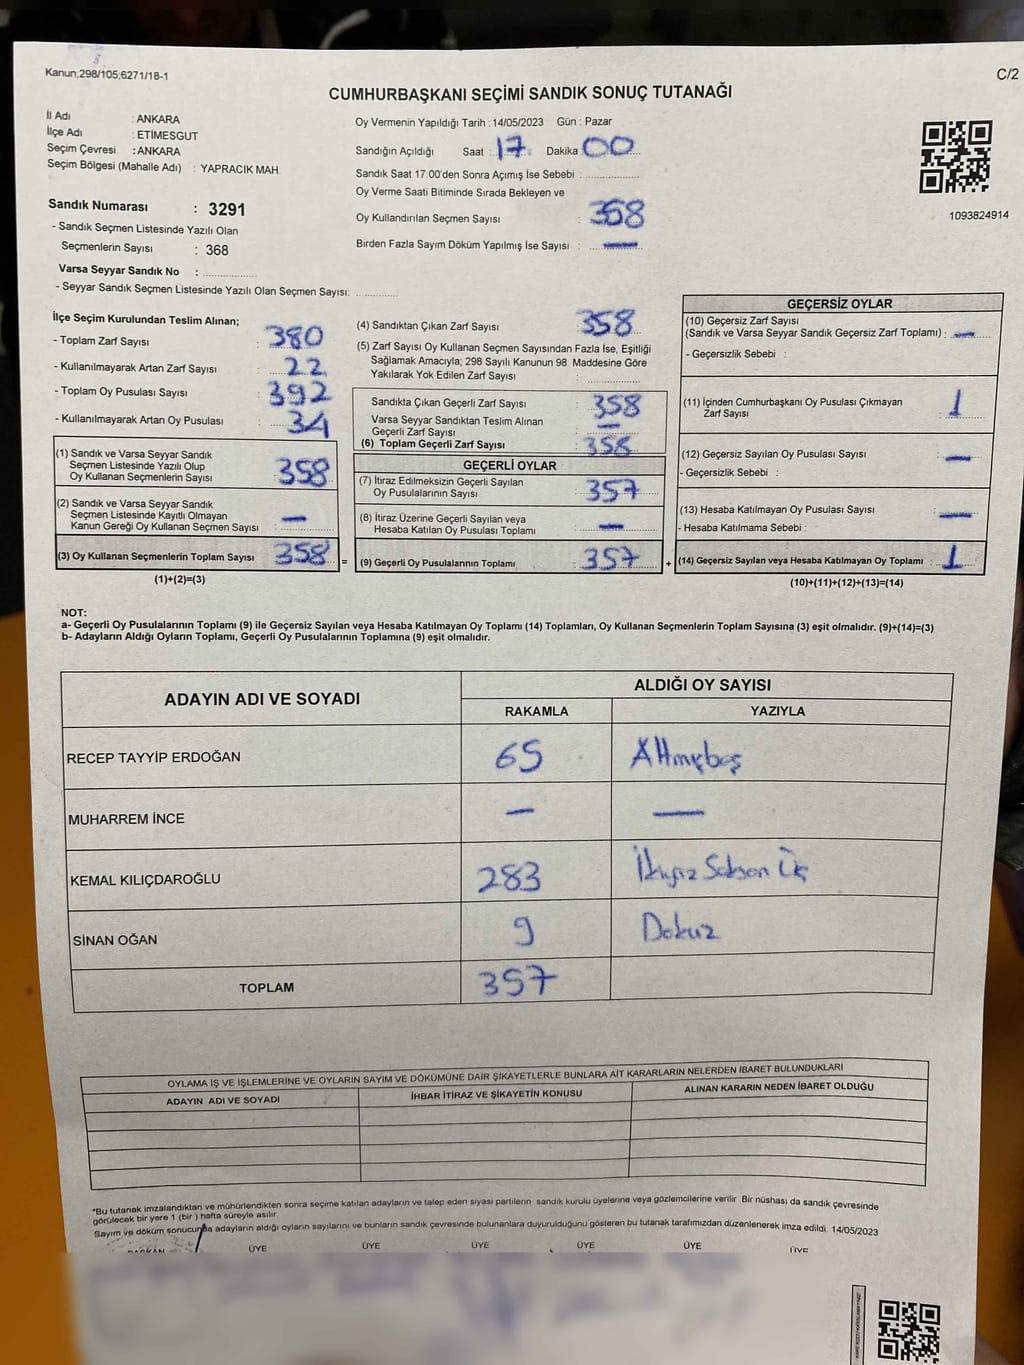 Kanun;298/105;6271/18-1
C/2
CUMHURBAŞKANI SEÇİMİ SANDIK SONUÇ TUTANAĞI
İl Adı : ANKARA
İlçe Adı : ETİMESGUT
Seçim Çevresi : ANKARA
Seçim Bölgesi (Mahalle Adı) : YAPRACIK MAH.
Oy Vermenin Yapıldığı Tarih : 14/05/2023 Gün : Pazar
Sandığın Açıldığı Saat : 17 Dakika : 00
Sandık Saat 17:00'den Sonra Açımış İse Sebebi :
Oy Verme Saati Bitiminde Sırada Bekleyen ve
Oy Kullandırılan Seçmen Sayısı : 358
Birden Fazla Sayım Döküm Yapılmış İse Sayısı : —
1093824914
Sandık Numarası : 3291
- Sandık Seçmen Listesinde Yazılı Olan
Seçmenlerin Sayısı : 368
Varsa Seyyar Sandık No :
- Seyyar Sandık Seçmen Listesinde Yazılı Olan Seçmen Sayısı:
İlçe Seçim Kurulundan Teslim Alınan;
- Toplam Zarf Sayısı : 380
- Kullanılmayarak Artan Zarf Sayısı : 22
- Toplam Oy Pusulası Sayısı : 392
- Kullanılmayarak Artan Oy Pusulası : 34
(1) Sandık ve Varsa Seyyar Sandık
Seçmen Listesinde Yazılı Olup
Oy Kullanan Seçmenlerin Sayısı : 358
(2) Sandık ve Varsa Seyyar Sandık
Seçmen Listesinde Kayıtlı Olmayan
Kanun Gereği Oy Kullanan Seçmen Sayısı : —
(3) Oy Kullanan Seçmenlerin Toplam Sayısı : 358 =
(1)+(2)=(3)
(4) Sandıktan Çıkan Zarf Sayısı : 358
(5) Zarf Sayısı Oy Kullanan Seçmen Sayısından Fazla İse, Eşitliği
Sağlamak Amacıyla; 298 Sayılı Kanunun 98. Maddesine Göre
Yakılarak Yok Edilen Zarf Sayısı :
Sandıkta Çıkan Geçerli Zarf Sayısı : 358
Varsa Seyyar Sandıktan Teslim Alınan
Geçerli Zarf Sayısı : —
(6) Toplam Geçerli Zarf Sayısı : 358
GEÇERLİ OYLAR
(7) İtiraz Edilmeksizin Geçerli Sayılan
Oy Pusulalarının Sayısı : 357
(8) İtiraz Üzerine Geçerli Sayılan veya
Hesaba Katılan Oy Pusulası Toplamı : —
(9) Geçerli Oy Pusulalarının Toplamı : 357 +
GEÇERSİZ OYLAR
(10) Geçersiz Zarf Sayısı
(Sandık ve Varsa Seyyar Sandık Geçersiz Zarf Toplamı) : —
- Geçersizlik Sebebi :
(11) İçinden Cumhurbaşkanı Oy Pusulası Çıkmayan
Zarf Sayısı : 1
(12) Geçersiz Sayılan Oy Pusulası Sayısı : —
- Geçersizlik Sebebi :
(13) Hesaba Katılmayan Oy Pusulası Sayısı : —
- Hesaba Katılmama Sebebi :
(14) Geçersiz Sayılan veya Hesaba Katılmayan Oy Toplamı : 1
(10)+(11)+(12)+(13)=(14)
NOT:
a- Geçerli Oy Pusulalarının Toplamı (9) ile Geçersiz Sayılan veya Hesaba Katılmayan Oy Toplamı (14) Toplamları, Oy Kullanan Seçmenlerin Toplam Sayısına (3) eşit olmalıdır. (9)+(14)=(3)
b- Adayların Aldığı Oyların Toplamı, Geçerli Oy Pusulalarının Toplamına (9) eşit olmalıdır.
ADAYIN ADI VE SOYADI
ALDIĞI OY SAYISI
RAKAMLA YAZIYLA
RECEP TAYYİP ERDOĞAN 65 Altmışbeş
MUHARREM İNCE — —
KEMAL KILIÇDAROĞLU 283 İkiyüz Seksen Üç
SİNAN OĞAN 9 Dokuz
TOPLAM 357
OYLAMA İŞ VE İŞLEMLERİNE VE OYLARIN SAYIM VE DÖKÜMÜNE DAİR ŞİKAYETLERLE BUNLARA AİT KARARLARIN NELERDEN İBARET BULUNDUKLARI
ADAYIN ADI VE SOYADI İHBAR İTİRAZ VE ŞİKAYETİN KONUSU ALINAN KARARIN NEDEN İBARET OLDUĞU
*Bu tutanak imzalandıktan ve mühürlendikten sonra seçime katılan adayların ve talep eden siyasi partilerin sandık kurulu üyelerine veya gözlemcilerine verilir. Bir nüshası da sandık çevresinde
görülecek bir yere 1 (bir) hafta süreyle asılır.
Sayım ve döküm sonucunda adayların aldığı oyların sayılarını ve bunların sandık çevresinde bulunanlara duyurulduğunu gösteren bu tutanak tarafımızdan düzenlenerek imza edildi. 14/05/2023
BAŞKAN ÜYE ÜYE ÜYE ÜYE ÜYE ÜYE